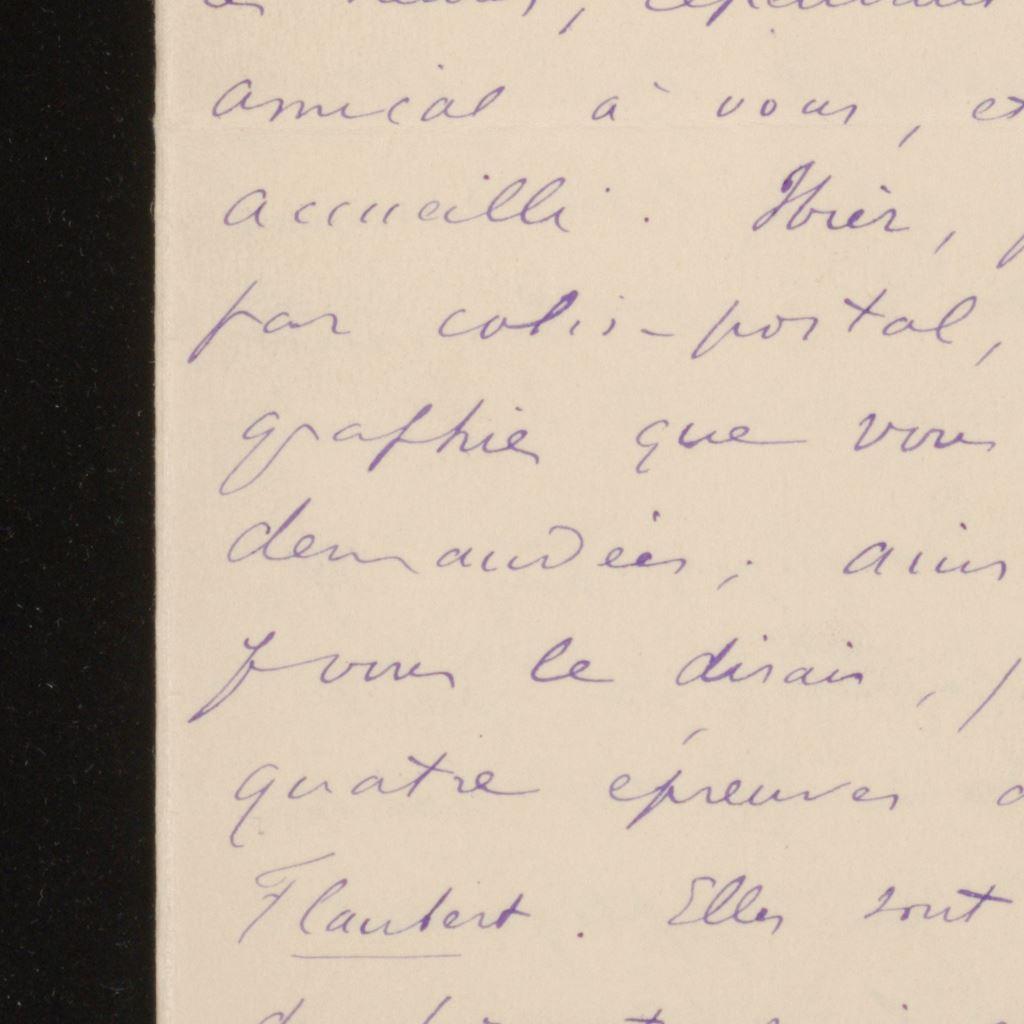 amical à vous, et
accueilli. Hier,
par colis-postal,
graphies que vous
demandées; ains
je vous le disais,
quatre épreuves d
Flaubert. Elles sont